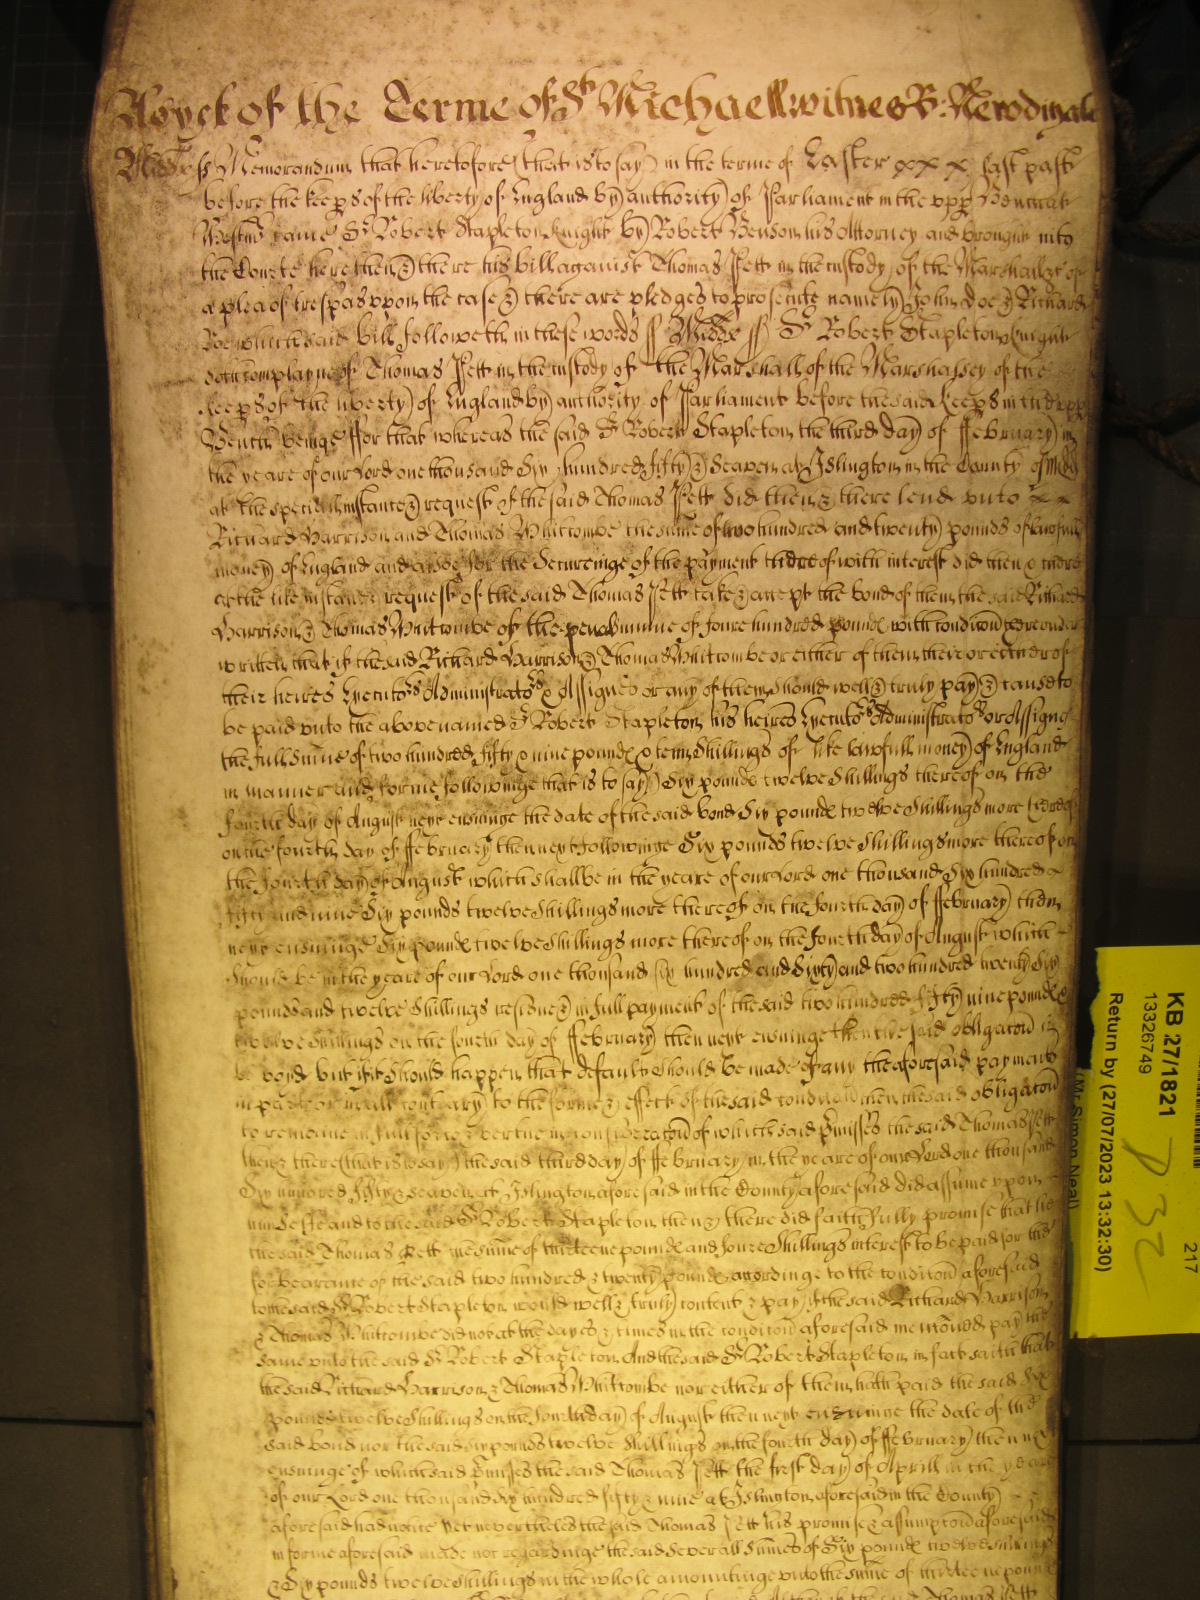 Noyck of the Terme of St Michaell witnes R: Newdigate
Midds ss Memorandum that heretofore (that is to say) in the terme of Easter xxx last past
before the keeps of the liberty of England by authority of Parliament in the upp Bench at
Westmr came Sr Robert Stapleton knight by Robert Benson his Attorney and brought into
the Courte here then & there his bill against Thomas Jett in the custody of the Marshall &c of
a plea of trespas vpon the case & there are pledges to prosecute namely John Doe & Richard
Roe which said bill followeth in these words ss Middx ss Sr Robert Stapleton knight
doth complayne of Thomas Jett in the custody of the Marshall of the Marshalsey of the
keeps of the liberty of England by authority of Parliament before the said keeps in the upp
Bench beinge ffor that whereas the said Sr Robert Stapleton the third day of ffebruary in
the yeare of our Lord one thousand Six hundred fifty & Seaven at Islington in the County of Midd
at the speciall instance & request of the said Thomas Jett did then & there lend vnto
Richard Harrison and Thomas Whitcombe the sume of two hundred and twenty pounds of lawfull
money of England and alsoe for the Secureinge of the payment thereof with interest did then & there
at the like instance & request of the said Thomas Jett take & accept the bond of them the said Richard
Harrison & Thomas Whitcombe of the penall sume of foure hundred pounds with condicon thereunder
written that if the said Richard Harrison & Thomas Whitcombe or either of them their or either of
their heires Executors Administrators & Assignes or any of them Should well & truly pay & cause to
be paid vnto the abovenamed Sr Robert Stapleton his heires Executors Administrators or Assignes
the full sume of two hundred fifty & nine pounds & tenn Shillings of like lawfull money of England
in manner and forme followinge that is to say Six pounds twelve Shillings thereof on the
fourth day of August next ensuinge the date of the said bond Six pounds twelve Shillings more thereof
on the fourth day of ffebruary then next followinge Six pounds twelve Shillings more thereof on
the fourth day of August which shall be in the yeare of our Lord one thousand Six hundred
fifty and nine Six pounds twelve Shillings more thereof on the fourth day of ffebruary then
next ensuinge Six pounds twelve Shillings more thereof on the fourth day of August which
should be in the yeare of our Lord one thousand six hundred and Sixty and two hundred twenty Six
pounds and twelve Shillings residue & in full payment of the said two hundred fifty nine pounds &
twelve Shillings on the fourth day of ffebruary then next ensuinge then the said obligacon to
be voyd but if it Should happen that default Should be made of any the aforesaid payments
in parte or in all contrary to the forme & effect of the said condicon then the said obligacon
to remaine in full force & vertue in consideracon of which said premisses the said Thomas Jett
then & there (that is to say) the said third day of ffebruary in the yeare of our Lord one thousand
Six hundred fifty & seaven at Islington aforesaid in the County aforesaid did assume vpon
himselfe and to the said Sr Robert Stapleton then & there did faithfully promise that he
the said Thomas Jett the sume of thirteene pounds and foure Shillings interest to be paid for the
forbearance of the said two hundred & twenty pounds accordinge to the condicon aforesaid
to the said Sr Robert Stapleton would well & truly content & pay if the said Richard Harrison
& Thomas Whitcombe did not at the dayes & times in the condicon aforesaid menconed pay the
same vnto the said Sr Robert Stapleton And the said Sr Robert Stapleton in fact saith that
the said Richard Harrison & Thomas Whitcombe nor either of them hath paid the said Six
pounds twelve Shillings on the fourth day of August then next ensuinge the date of the
said bond nor the said six pounds twelve Shillings on the fourth day of ffebruary then next
ensuinge of which said premisses the said Thomas Jett the first day of Aprill in the yeare
of our Lord one thousand Six hundred fifty & nine at Islington aforesaid in the County
aforesaid had notice Yet neverthelesse the said Thomas Jett his promise & assumpcon aforesaid
in forme aforesaid made not regardinge the said severall Sumes of Six pounds twelve shillings
& Six pounds twelve Shillings in the whole amountinge vnto the sume of thirteene pounds
KB 27/1821
13326749
Return by (27/07/2023 13:32:30)
(Mr Simon Neal)
217
P 32